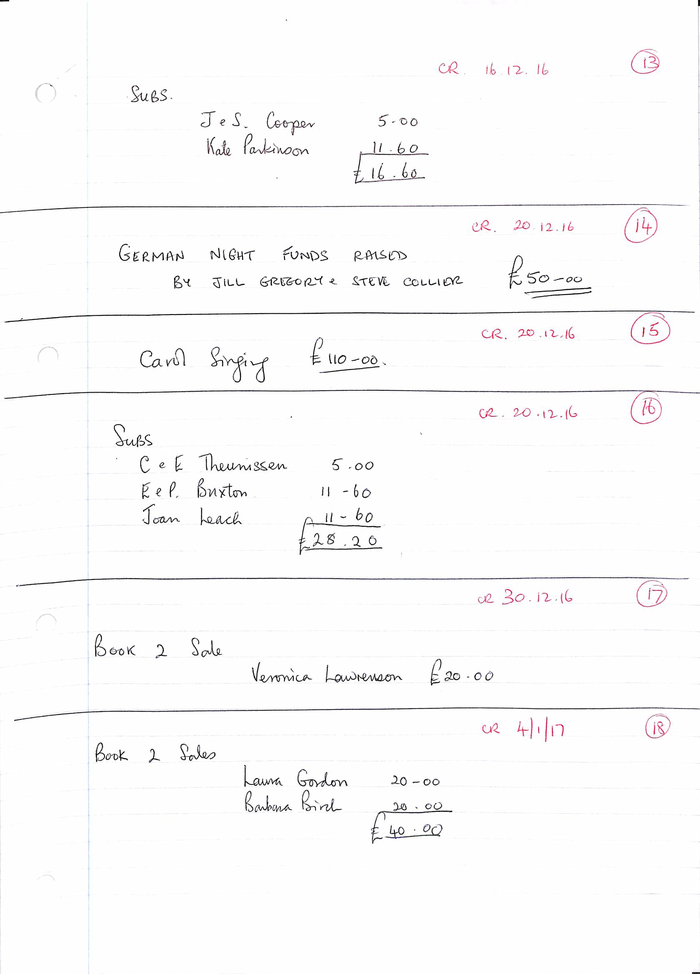 CR. 16.12.16 13
SUBS.
J e S. Cooper 5.00
Kate Parkinson 11.60
£16.60
CR. 20.12.16 14
GERMAN NIGHT FUNDS RAISED
BY JILL GREGORY & STEVE COLLIER £50-00
CR. 20.12.16 15
Carol Singing £110-00.
CR. 20.12.16 16
SUBS
C e E Theunissen 5.00
E e P. Buxton 11-60
Joan Leach 11-60
£28.20
CR 30.12.16 17
BOOK 2 Sale
Veronica Lawrenson £20.00
CR 4/1/17 18
BOOK 2 Sales
Laura Gordon 20-00
Barbara Birch 20.00
£40.00